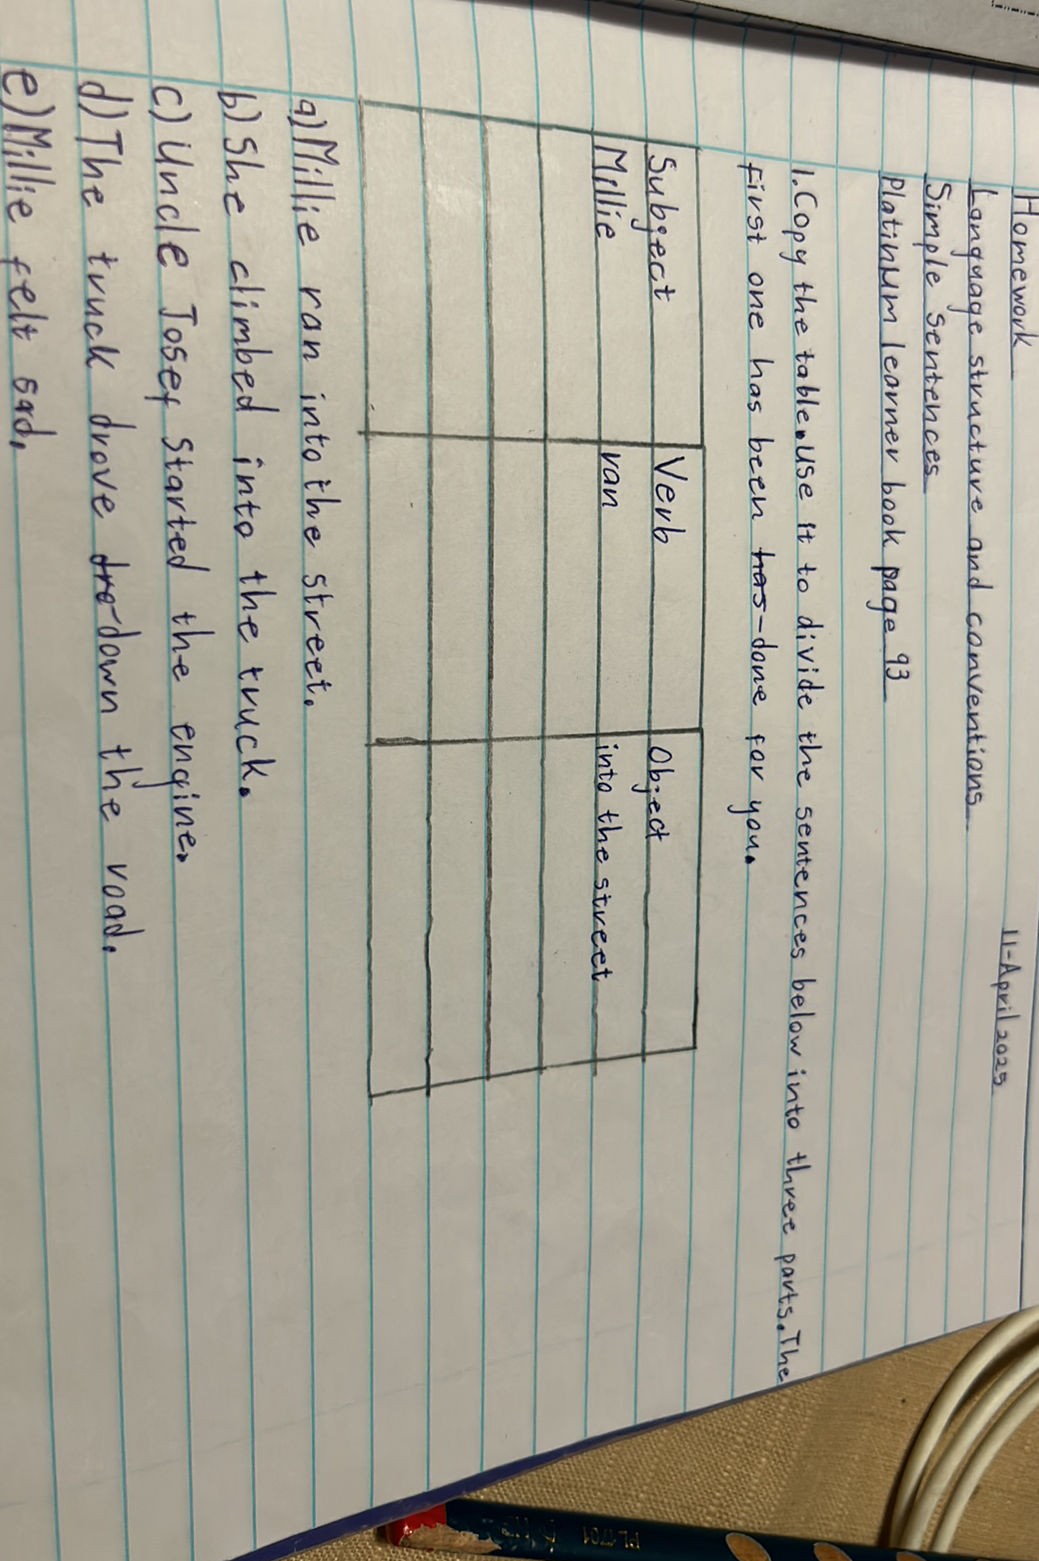 Homework
11-April 2025
Langyage structure and conventions
Simple sentences
Platinum learner book page 93
1. Copy the table. use it to divide the sentences below into three parts. The
first one has been has done for you.
Subject Verb Object
Millie ran into the street
a) Millie ran into the street.
b) She climbed into the truck.
c) Uncle Tosef started the engine.
d) The truck drove dro down the road.
e) Millie felt sad.
PL7701